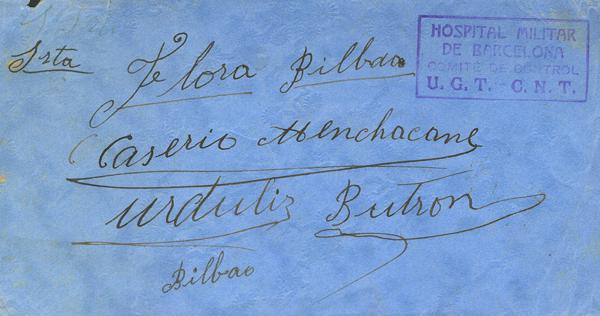 Srta Flora Bilbao
Caserio Menchacane
Urduliz Butron
Bilbao
HOSPITAL MILITAR
DE BARCELONA
COMITÉ DE CONTROL
U. G. T. - C. N. T.